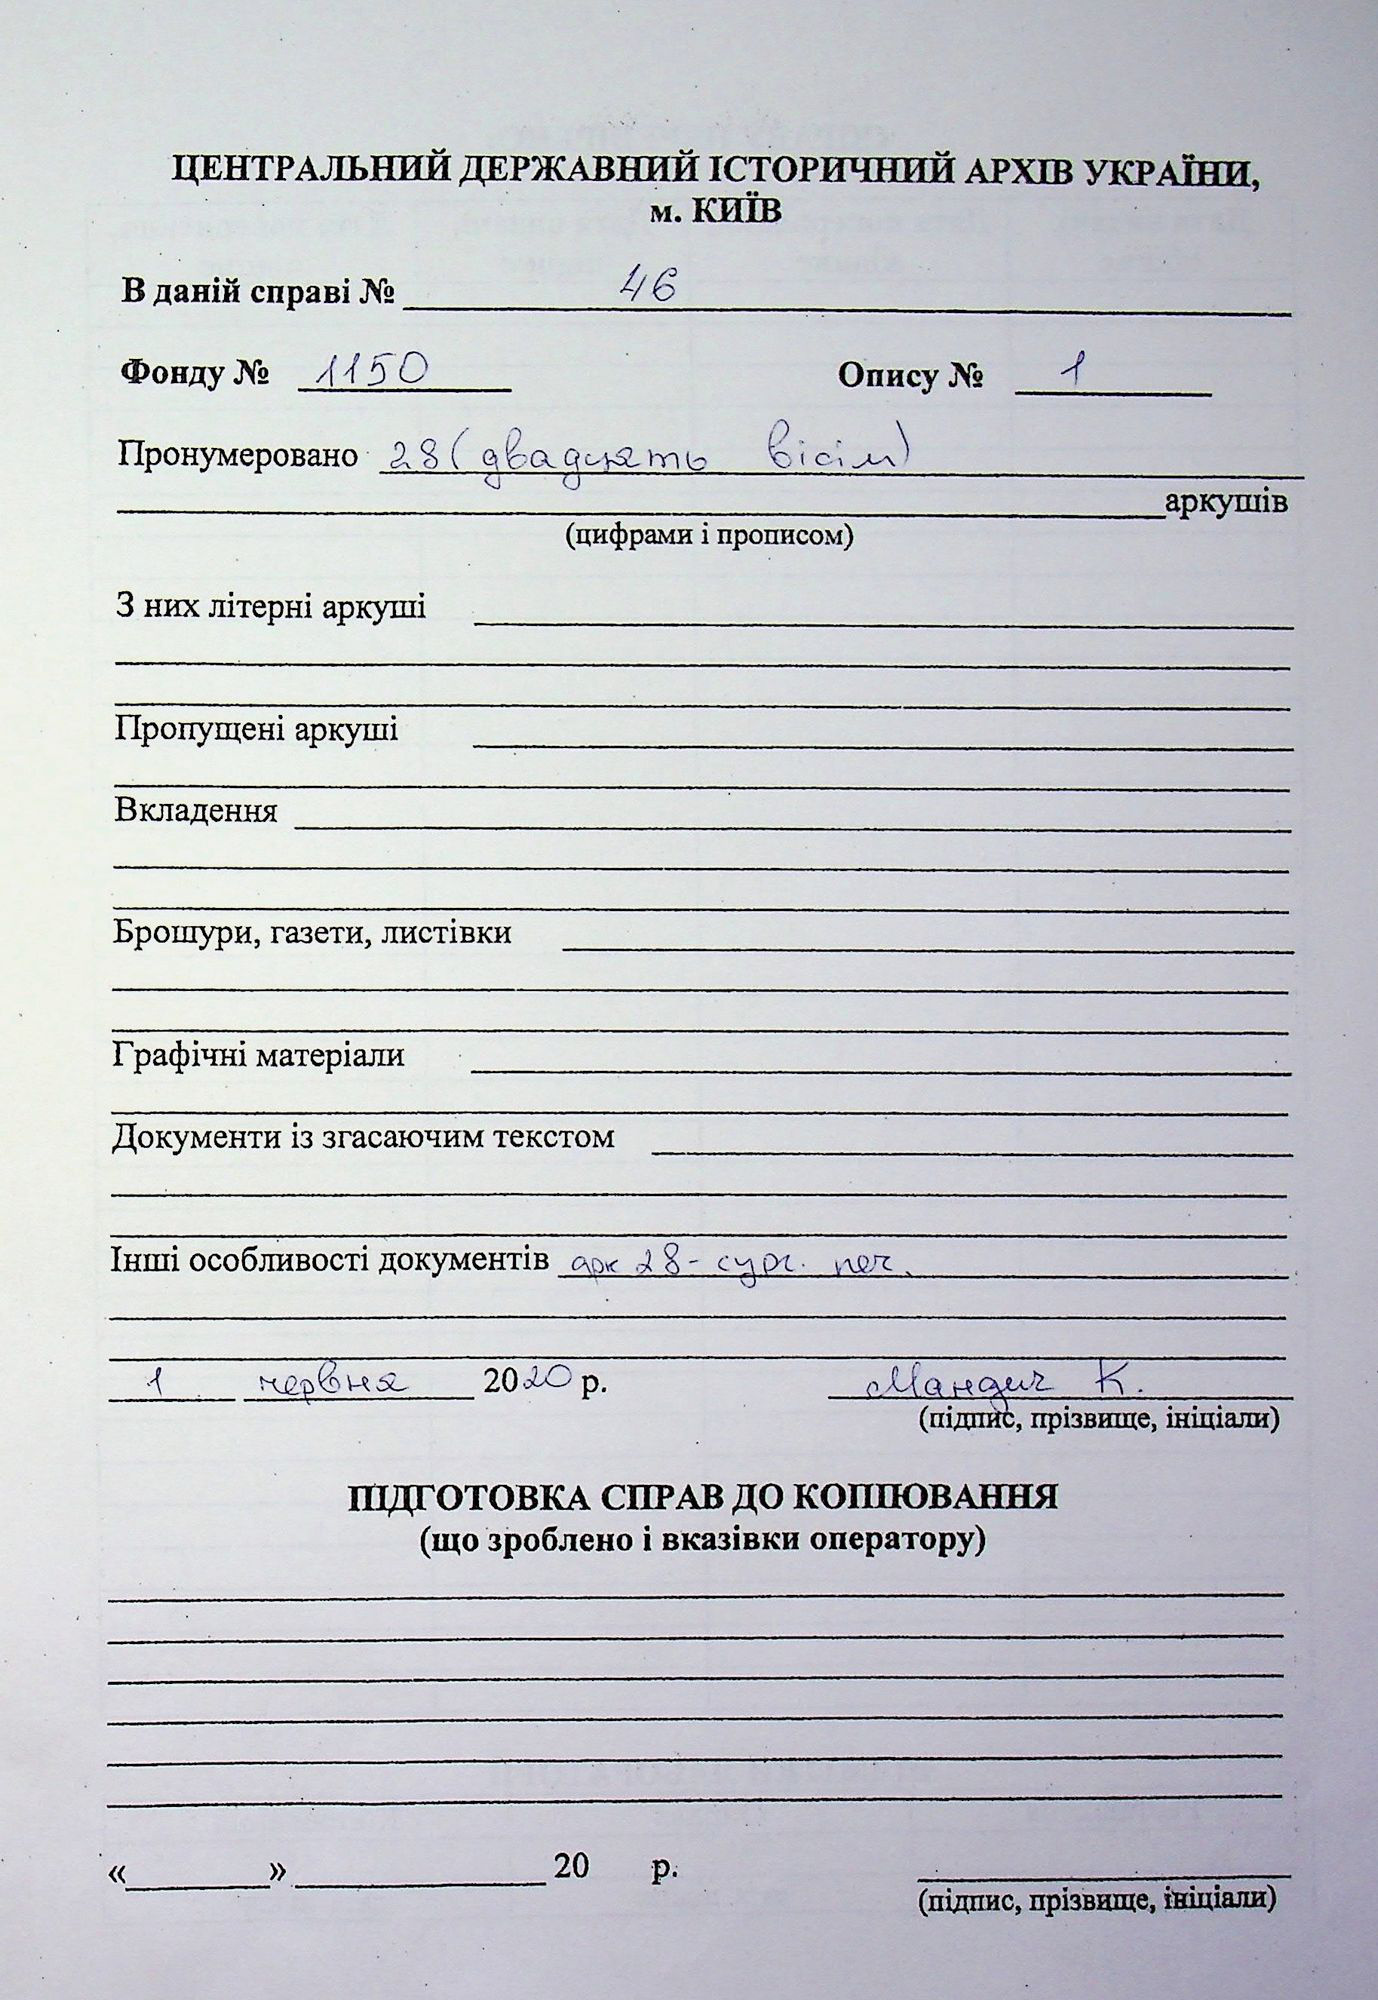 ЦЕНТРАЛЬНИЙ ДЕРЖАВНИЙ ІСТОРИЧНИЙ АРХІВ УКРАЇНИ,
м. КИЇВ
В даній справі № 46
Фонду № 1150 Опису № 1
Пронумеровано 28 (двадцять вісім)
аркушів
(цифрами і прописом)
З них літерні аркуші
Пропущені аркуші
Вкладення
Брошури, газети, листівки
Графічні матеріали
Документи із згасаючим текстом
Інші особливості документів арк 28 - сург. печ.
1 червня 2020 р. Мандич К.
(підпис, прізвище, ініціали)
ПІДГОТОВКА СПРАВ ДО КОПІЮВАННЯ
(що зроблено і вказівки оператору)
« » 20 р.
(підпис, прізвище, ініціали)